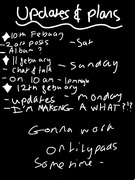 Updates & plans
10th Febuary
- 2 art posts - Sat
Album?
11 febuary - Sunday
- Chat & talk
- On 10 am -
12th febuary
- updates - monday
- I'M MAKING A WHAT?!?
Gonna work
on lilypads
Sometime -